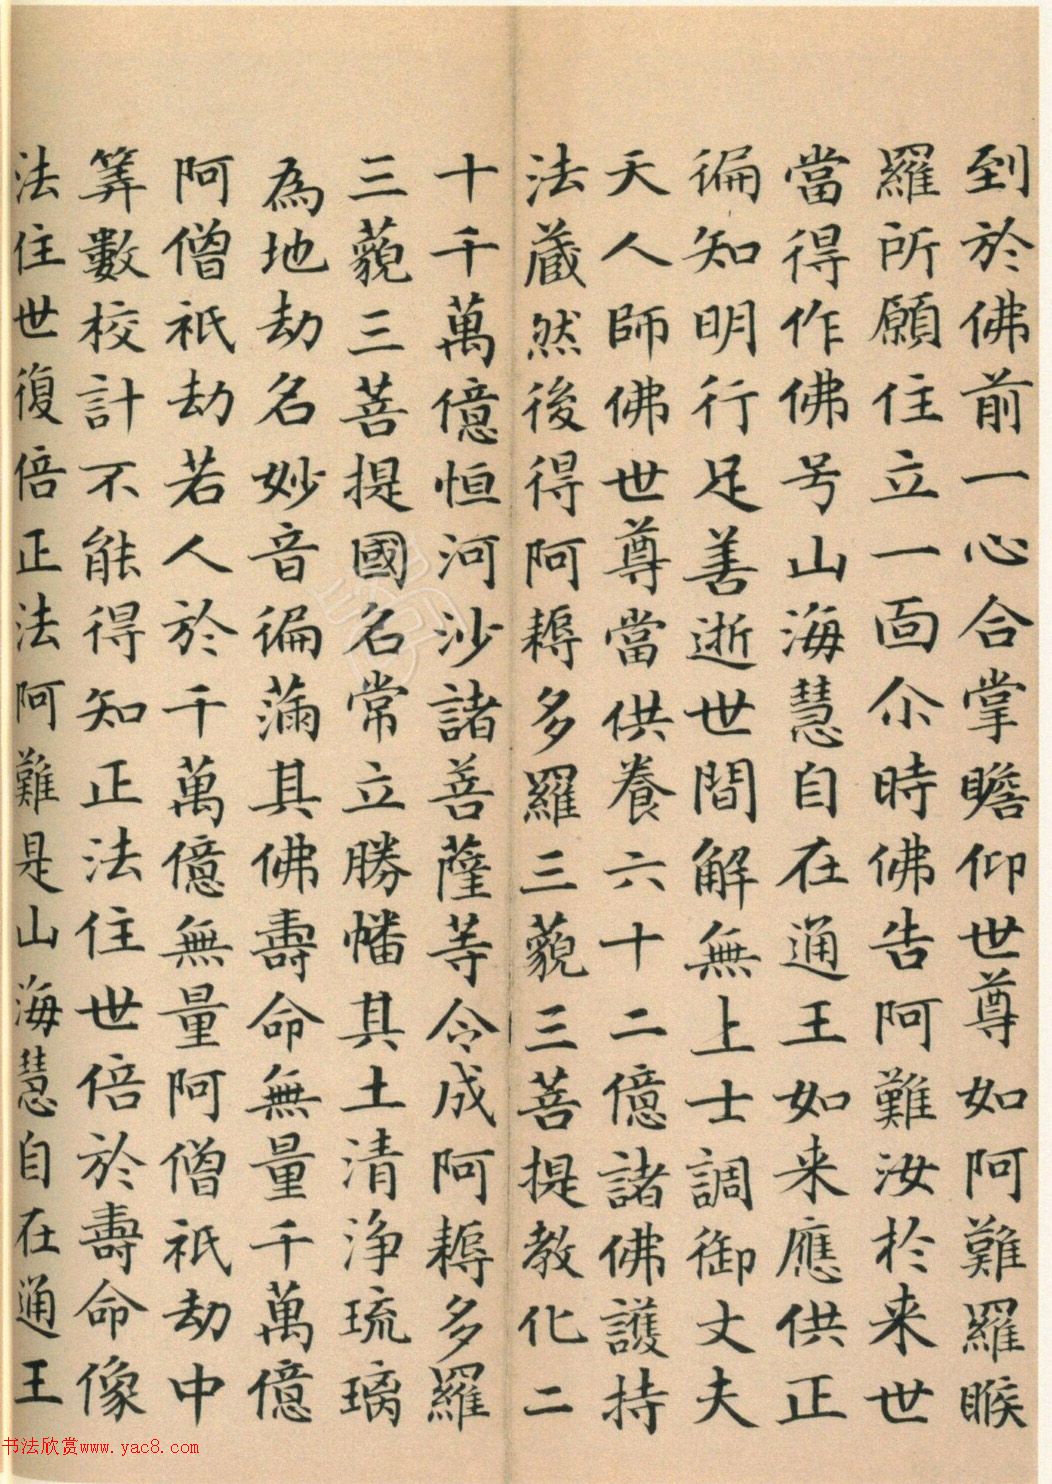 到於佛前一心合掌瞻仰世尊如阿難羅睺
羅所願住立一面尒時佛告阿難汝於来世
當得作佛号山海慧自在通王如来應供正
徧知明行足善逝世間解無上士調御丈夫
天人師佛世尊當供養六十二億諸佛護持
法藏然後得阿耨多羅三藐三菩提教化二
十千萬億恒河沙諸菩薩等令成阿耨多羅
三藐三菩提國名常立勝幡其土清淨琉璃
為地劫名妙音徧滿其佛壽命無量千萬億
阿僧祇劫若人於千萬億無量阿僧祇劫中
筭數校計不能得知正法住世倍於壽命像
法住世復倍正法阿難是山海慧自在通王
书法欣赏www.yac8.com